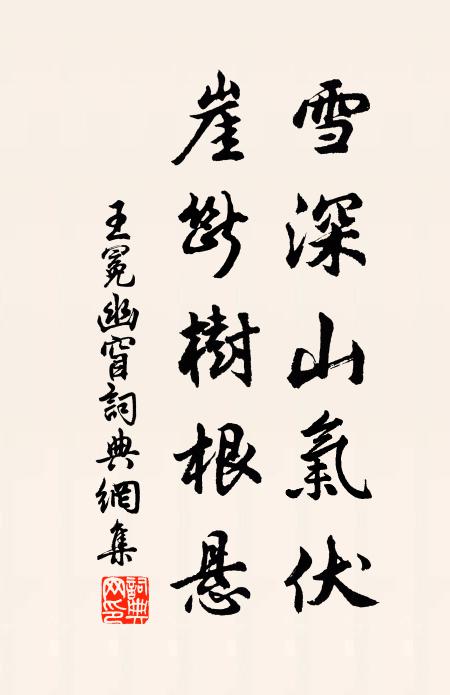 雪深山氣伏
崖斷樹根懸
王冕幽窅詞典網集
詞典网印